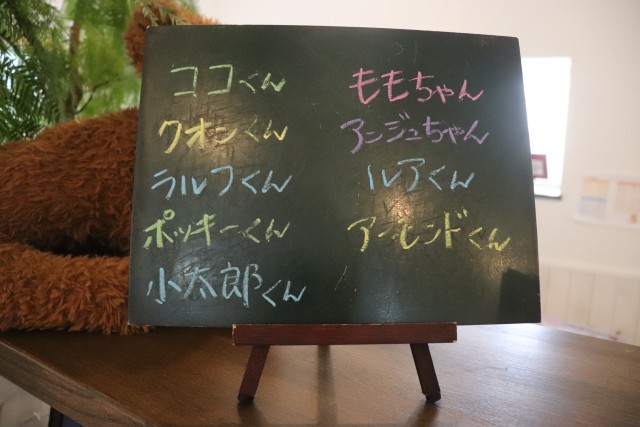 ココくん
クオンくん
ラルフくん
ポッキーくん
小太郎くん
ももちゃん
アンジュちゃん
ルアくん
アーモンドくん